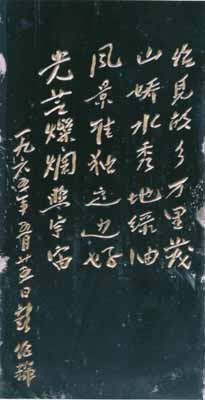 始見故乡万里
山娇水秀地绿油
风景惟独这边好
光芒燦烂照宇宙
一九六五年五月廿五日